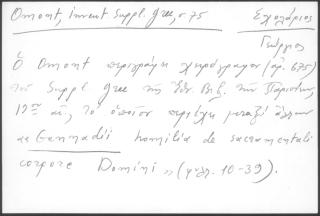 Omont, invent Suppl. grec, σ 75
Σχολάριος
Γεώργιος
Ὁ Omont περιγράφει χειρόγραφον (ἀρ. 675)
τοῦ Suppl grec τῆς Ἐθν Βιβ. τῶν Παρισίων,
αἰ, τὸ ὁποῖον περιέχει μεταξὺ ἄλλων
"Gennadii homilia de sacramentali
corpore Domini" (φύλ. 10-39).